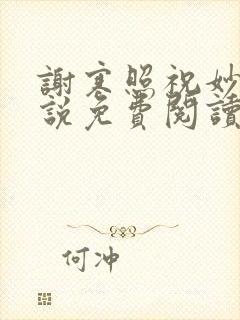 謝寒照祝妙
說免費閱讀
何冲